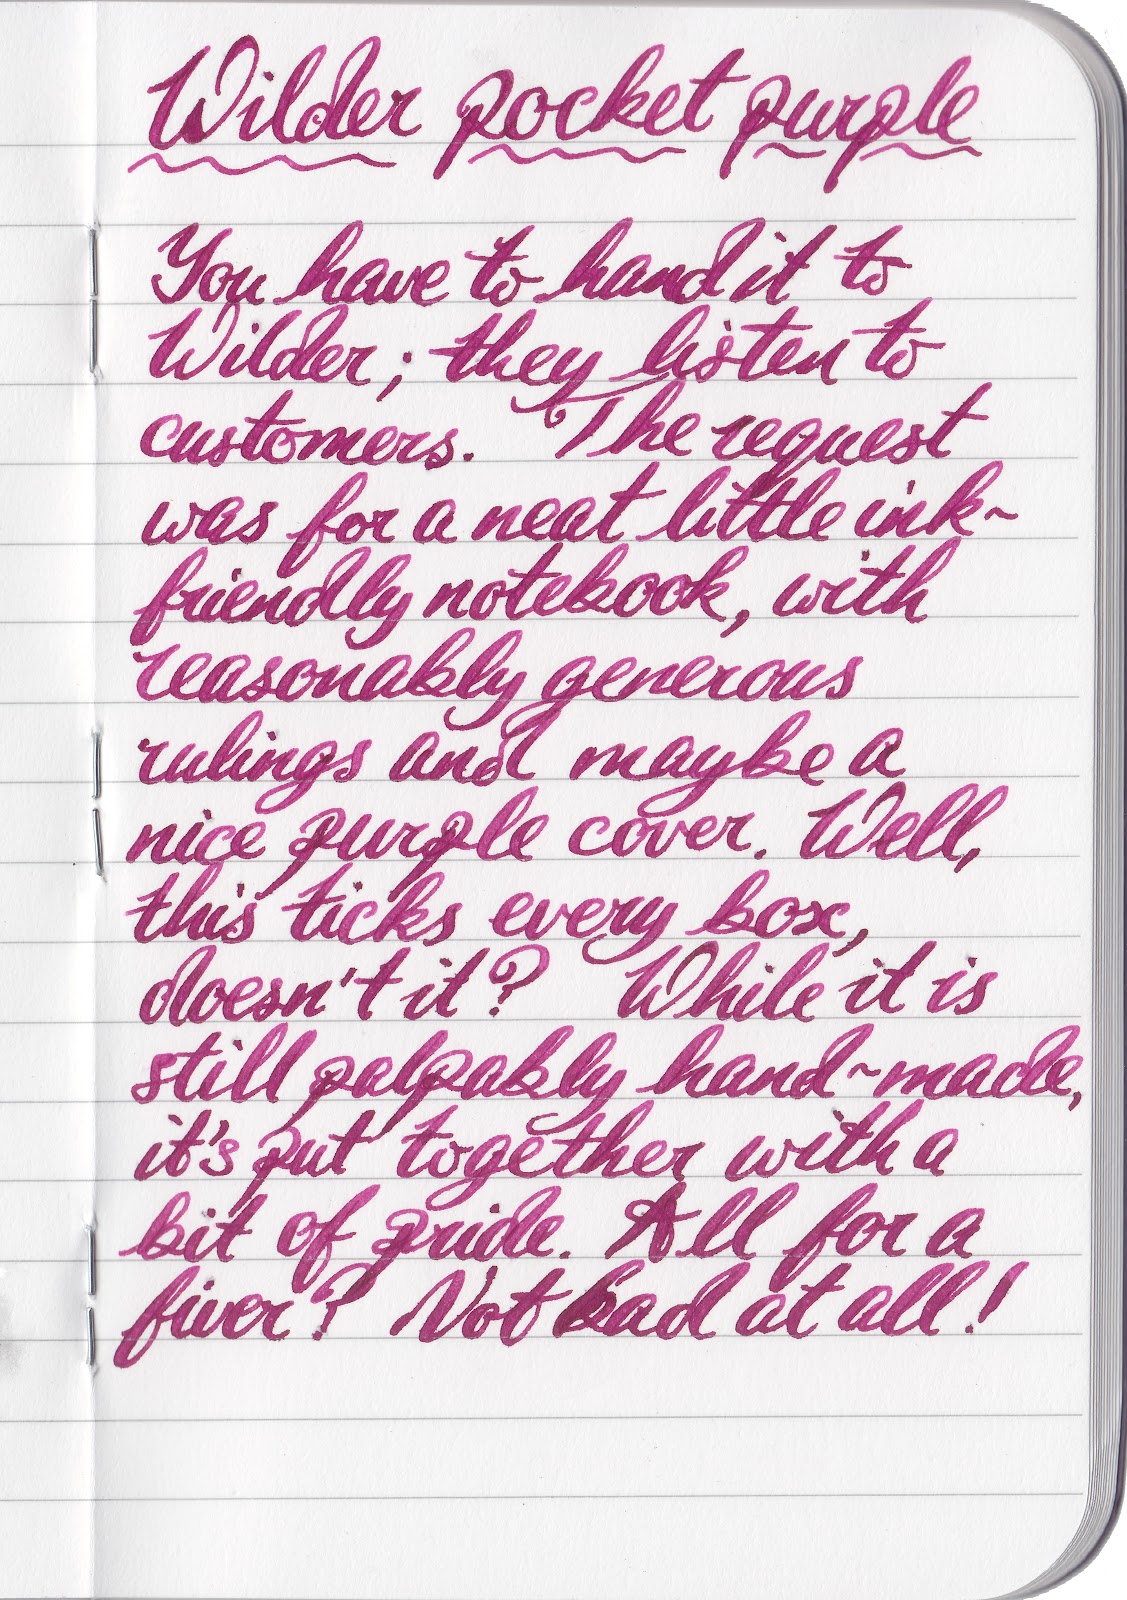 Wilder pocket purple
You have to hand it to
Wilder; they listen to
customers. The request
was for a neat little ink~
friendly notebook, with
reasonably generous
rulings and maybe a
nice purple cover. Well,
this ticks every box,
doesn't it? While it is
still palpably hand~made,
it's put together with a
bit of pride. All for a
fiver? Not bad at all!